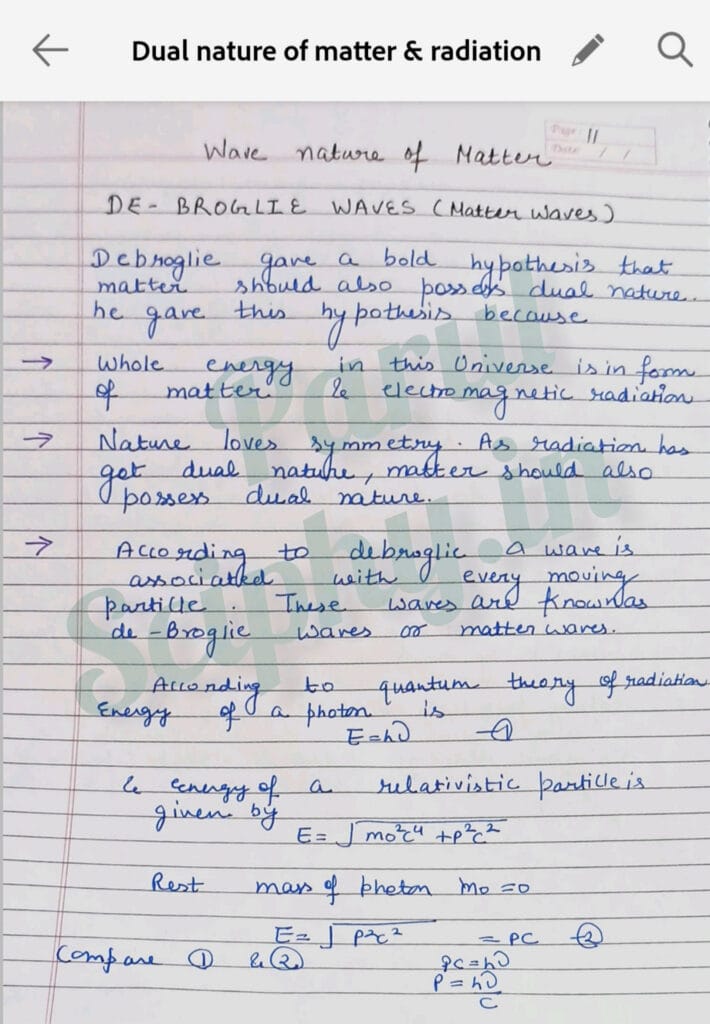 Dual nature of matter & radiation
Page: 11
Date / /
Wave nature of Matter
DE-BROGLIE WAVES (Matter Waves)
Debroglie gave a bold hypothesis that
matter should also possess dual nature.
he gave this hypothesis because
→ Whole energy in this Universe is in form
of matter & electromagnetic radiation
→ Nature loves symmetry. As radiation has
got dual nature, matter should also
possess dual nature.
→ According to debroglie a wave is
associated with every moving
particle. These waves are known as
de-Broglie waves or matter waves.
According to quantum theory of radiation
Energy of a photon is
E=hν —①
& energy of a relativistic particle is
given by
E= √m₀²c⁴ +p²c²
Rest mass of photon m₀=0
E= √p²c² = pc ②
Compare ① & ② pc=hν
p = hν/c
Parul
Sciphy.in